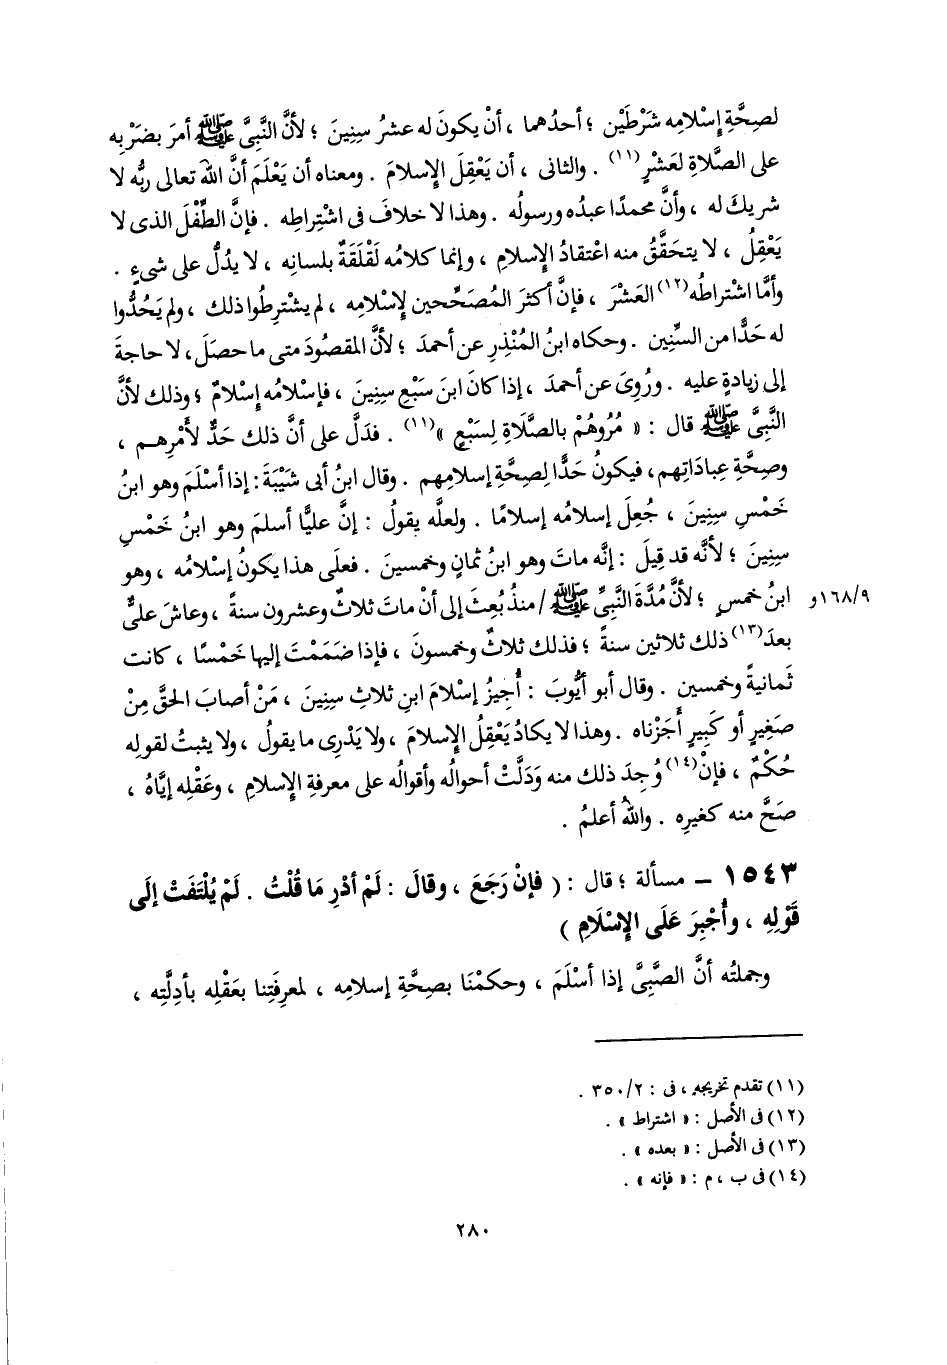 لصِحَّةِ إسْلامِه شَرْطَيْن ؛ أحدُهما ، أنْ يكونَ له عشرُ سِنِينَ ؛ لأنَّ النَّبِىَّ ﷺ أمرَ بضَرْبِه
على الصَّلاةِ لعَشْرٍ(١١) . والثانى ، أن يَعْقِلَ الإسلامَ . ومعناه أن يَعْلَمَ أنَّ اللهَ تعالى ربُّه لا
شريكَ له ، وأنَّ محمدًا عبدُه ورسولُه . وهذا لا خلافَ فى اشْتِراطِه . فإنَّ الطِّفْلَ الذى لا
يَعْقِلُ ، لا يتحَقَّقُ منه اعْتقادُ الإسلامِ ، وإنما كلامُه لَقْلَقَةٌ بلسانِه ، لا يدُلُّ على شىءٍ .
وأمَّا اشْتراطُه(١٢) العَشْرَ ، فإنَّ أكثرَ المُصَحِّحين لإسْلامِه ، لم يشْترِطُوا ذلك ، ولم يَحُدُّوا
له حَدًّا من السِّنِين . وحكاه ابنُ المُنْذِرِ عن أحمدَ ؛ لأنَّ المقصُودَ متى ما حصَلَ، لا حاجةَ
إلى زيادةٍ عليه . ورُوِىَ عن أحمدَ ، إذا كانَ ابنَ سَبْعِ سِنِينَ ، فإسْلامُه إسْلامٌ ؛ وذلك لأنَّ
النَّبِىَّ ﷺ قال : « مُرُوهُمْ بالصَّلَاةِ لِسَبْعٍ »(١١) . فدَلَّ على أنَّ ذلك حَدٌّ لأَمْرِهم ،
وصِحَّةِ عِبادَاتِهم، فيكونُ حَدًّا لِصِحَّةِ إسلامِهم . وقال ابنُ أبى شَيْبَةَ : إذا أسْلَمَ وهو ابنُ
خَمْسِ سِنِينَ ، جُعِلَ إسلامُه إسلامًا . ولعلَّه يقولُ : إنَّ عليًّا أسلمَ وهو ابنُ خَمْسِ
سِنِينَ ؛ لأنَّه قد قِيلَ : إنَّه ماتَ وهو ابنُ ثمانٍ وخمسينَ . فعلَى هذا يكونُ إسْلامُه ، وهو
ابنُ خمسٍ ؛ لأنَّ مُدَّةَ النَّبِىِّ ﷺ / منذُ بُعِثَ إلى أنْ ماتَ ثلاثٌ وعشرون سنةً ، وعاشَ علىٌّ ١٦٨/٩و
بعدَ(١٣) ذلك ثلاثين سنةً ؛ فذلك ثلاثٌ وخمسونَ ، فإذا ضَمَمْتَ إليها خَمْسًا ، كانت
ثَمانيةً وخمسين . وقال أبو أيُّوبَ : أُجِيزُ إسْلامَ ابنِ ثلاثِ سِنِينَ ، مَنْ أصابَ الحَقَّ مِنْ
صَغِيرٍ أو كَبِيرٍ أَجَزْناه . وهذا لا يكادُ يَعْقِلُ الإسلامَ ، ولا يَدْرِى ما يقولُ ، ولا يثبتُ لقولِه
حُكْمٌ ، فإنْ(١٤) وُجِدَ ذلك منه وَدَلَّتْ أحوالُه وأقوالُه على معرفةِ الإسلامِ ، وعَقْلِه إيَّاهُ ،
صَحَّ منه كغيرِه . واللهُ أعلمُ .
١٥٤٣ – مسألة ؛ قال : ( فإنْ رَجَعَ ، وقالَ : لَمْ أدْرِ مَا قُلْتُ . لَمْ يُلْتَفَتْ إلَى
قَوْلِهِ ، وأُجْبِرَ عَلَى الإسْلَامِ )
وجملتُه أنَّ الصَّبِىَّ إذا أسْلَمَ ، وحكمْنَا بصِحَّةِ إسلامِه ، لمعرِفَتِنا بعَقْلِه بأدِلَّتِه ،
(١١) تقدم تخريجه ، فى : ٣٥٠/٢ .
(١٢) فى الأصل : « اشتراط » .
(١٣) فى الأصل : « بعده » .
(١٤) فى ب ، م : « فإنه » .
٢٨٠